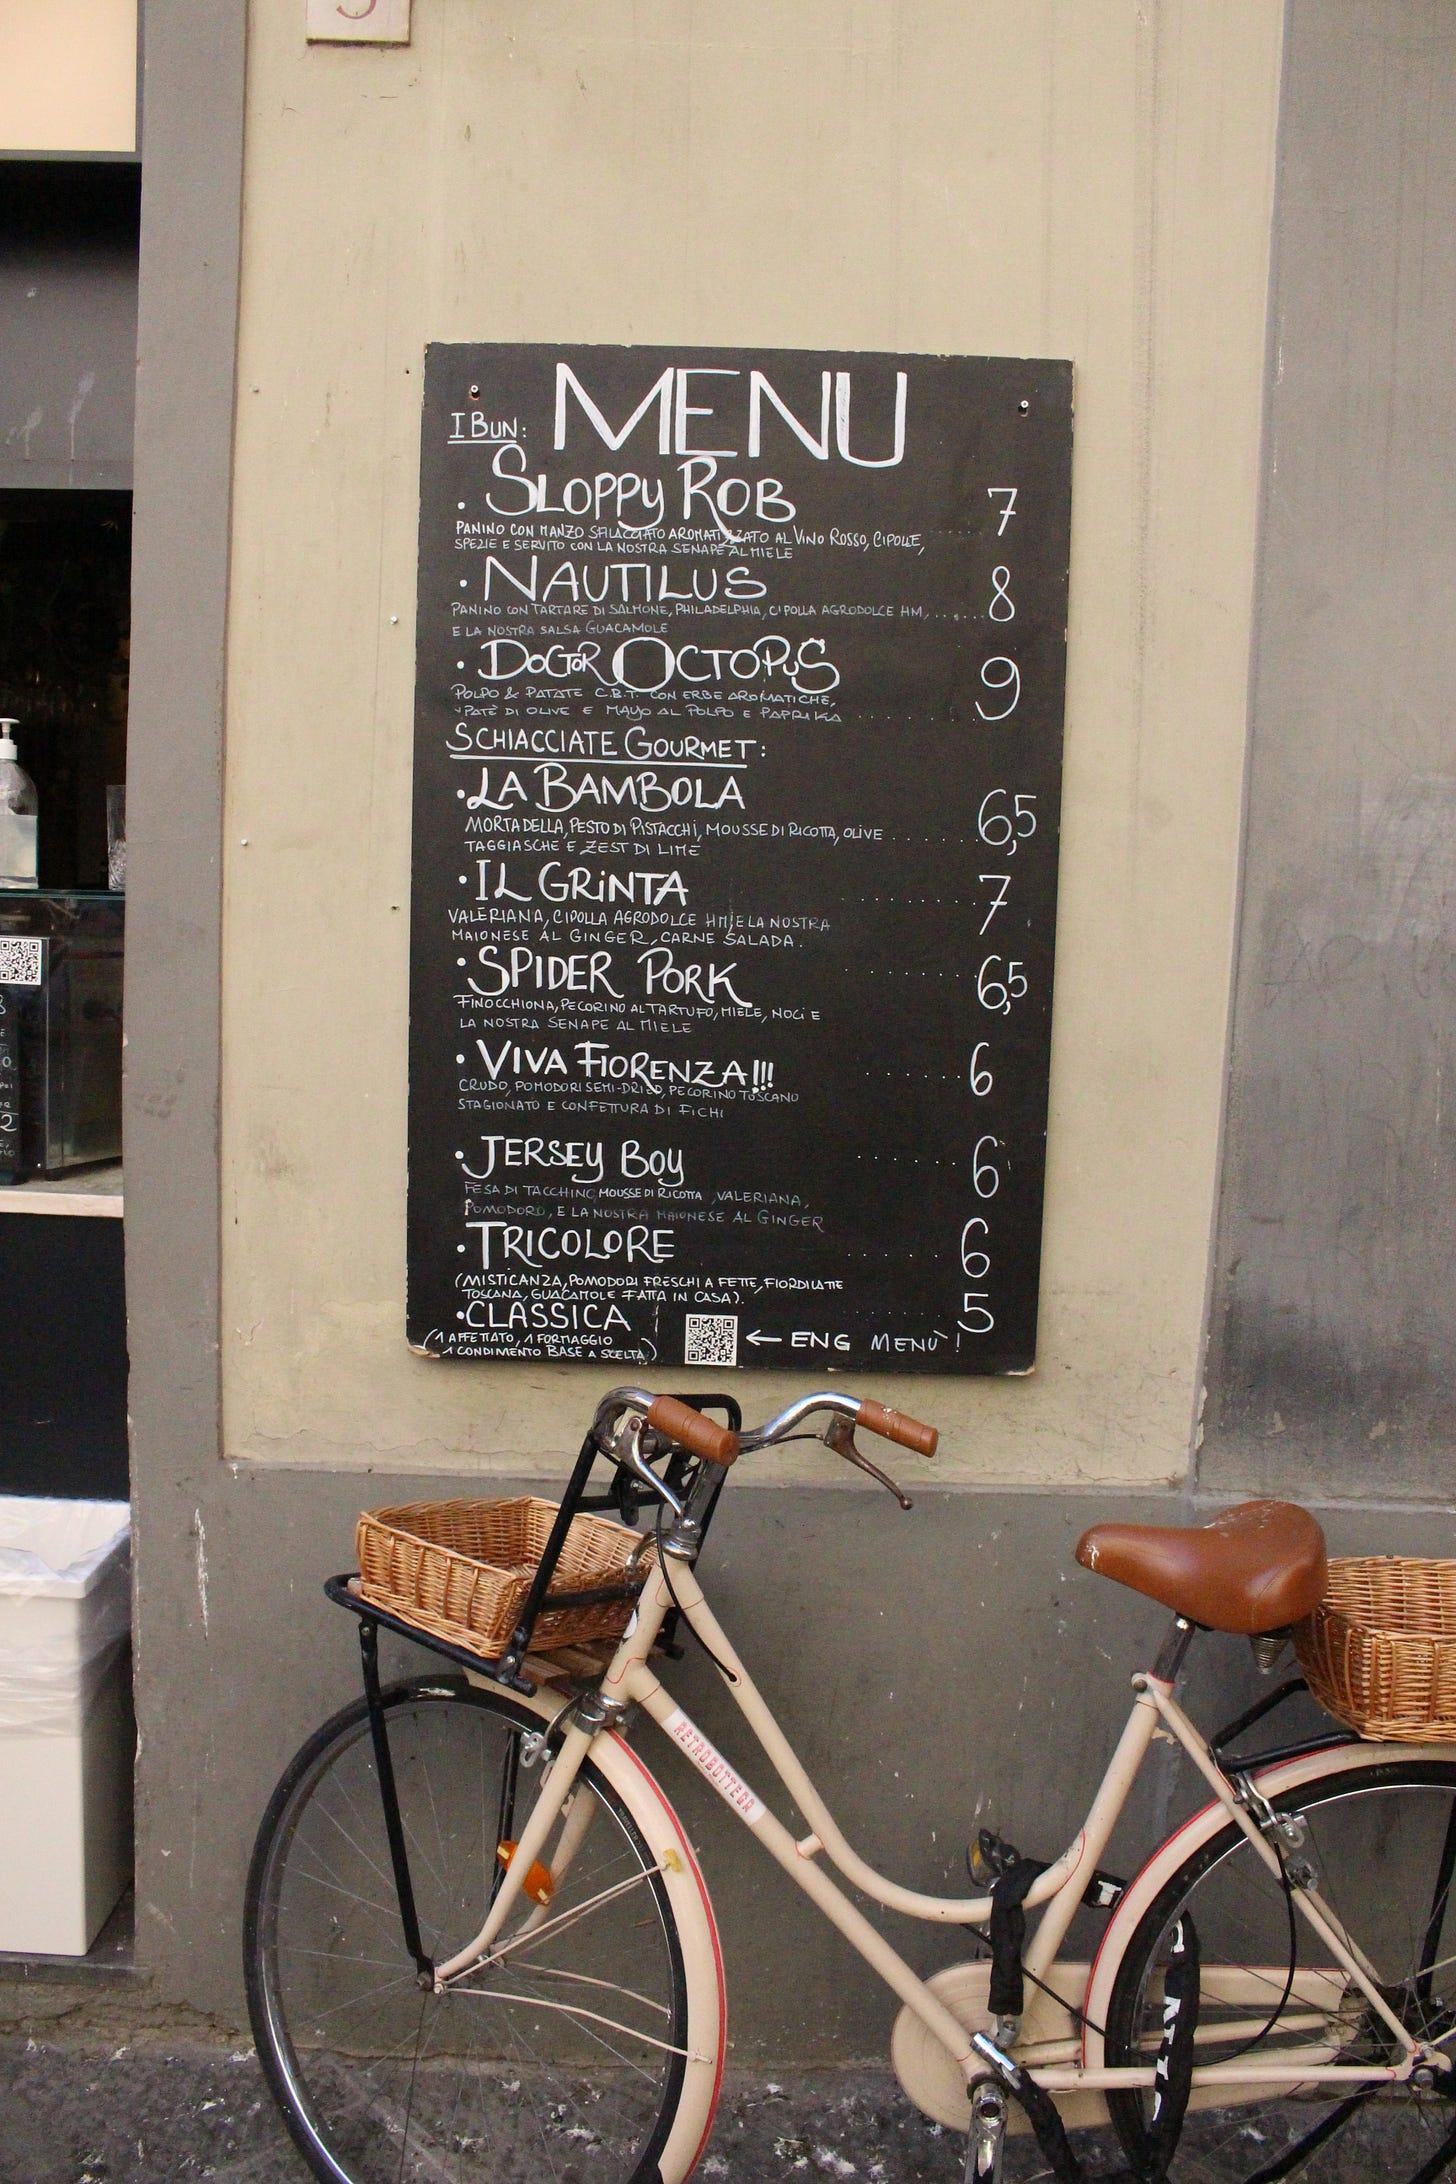 MENU
I BUN:
• SLOPPY ROB 7
PANINO CON MANZO SFILACCIATO AROMATIZZATO AL VINO ROSSO, CIPOLLE,
SPEZIE E SERVITO CON LA NOSTRA SENAPE AL MIELE
• NAUTILUS
PANINO CON TARTARE DI SALMONE, PHILADELPHIA, CIPOLLA AGRODOLCE HM, ...... 8
E LA NOSTRA SALSA GUACAMOLE
• DOCTOR OCTOPUS 9
POLPO & PATATE C.B.T. CON ERBE AROMATICHE,
PATÈ DI OLIVE E MAYO AL POLPO E PAPRIKA ........
SCHIACCIATE GOURMET:
• LA BAMBOLA 6,5
MORTADELLA, PESTO DI PISTACCHI, MOUSSE DI RICOTTA, OLIVE ......
TAGGIASCHE E ZEST DI LIME
• IL GRINTA ........ 7
VALERIANA, CIPOLLA AGRODOLCE HM, E LA NOSTRA
MAIONESE AL GINGER, CARNE SALADA.
• SPIDER PORK ........ 6,5
FINOCCHIONA, PECORINO AL TARTUFO, MIELE, NOCI E
LA NOSTRA SENAPE AL MIELE
• VIVA FIORENZA!!! ........ 6
CRUDO, POMODORI SEMI-DRIED, PECORINO TOSCANO
STAGIONATO E CONFETTURA DI FICHI
• JERSEY BOY ........ 6
FESA DI TACCHINO, MOUSSE DI RICOTTA, VALERIANA,
POMODORO, E LA NOSTRA MAIONESE AL GINGER
• TRICOLORE ........ 6
(MISTICANZA, POMODORI FRESCHI A FETTE, FIORDILATTE
TOSCANA, GUACAMOLE FATTA IN CASA).
• CLASSICA ........ 5
(1 AFFETTATO, 1 FORMAGGIO
1 CONDIMENTO BASE A SCELTA)
← ENG MENU` !
RETROBOTTEGA